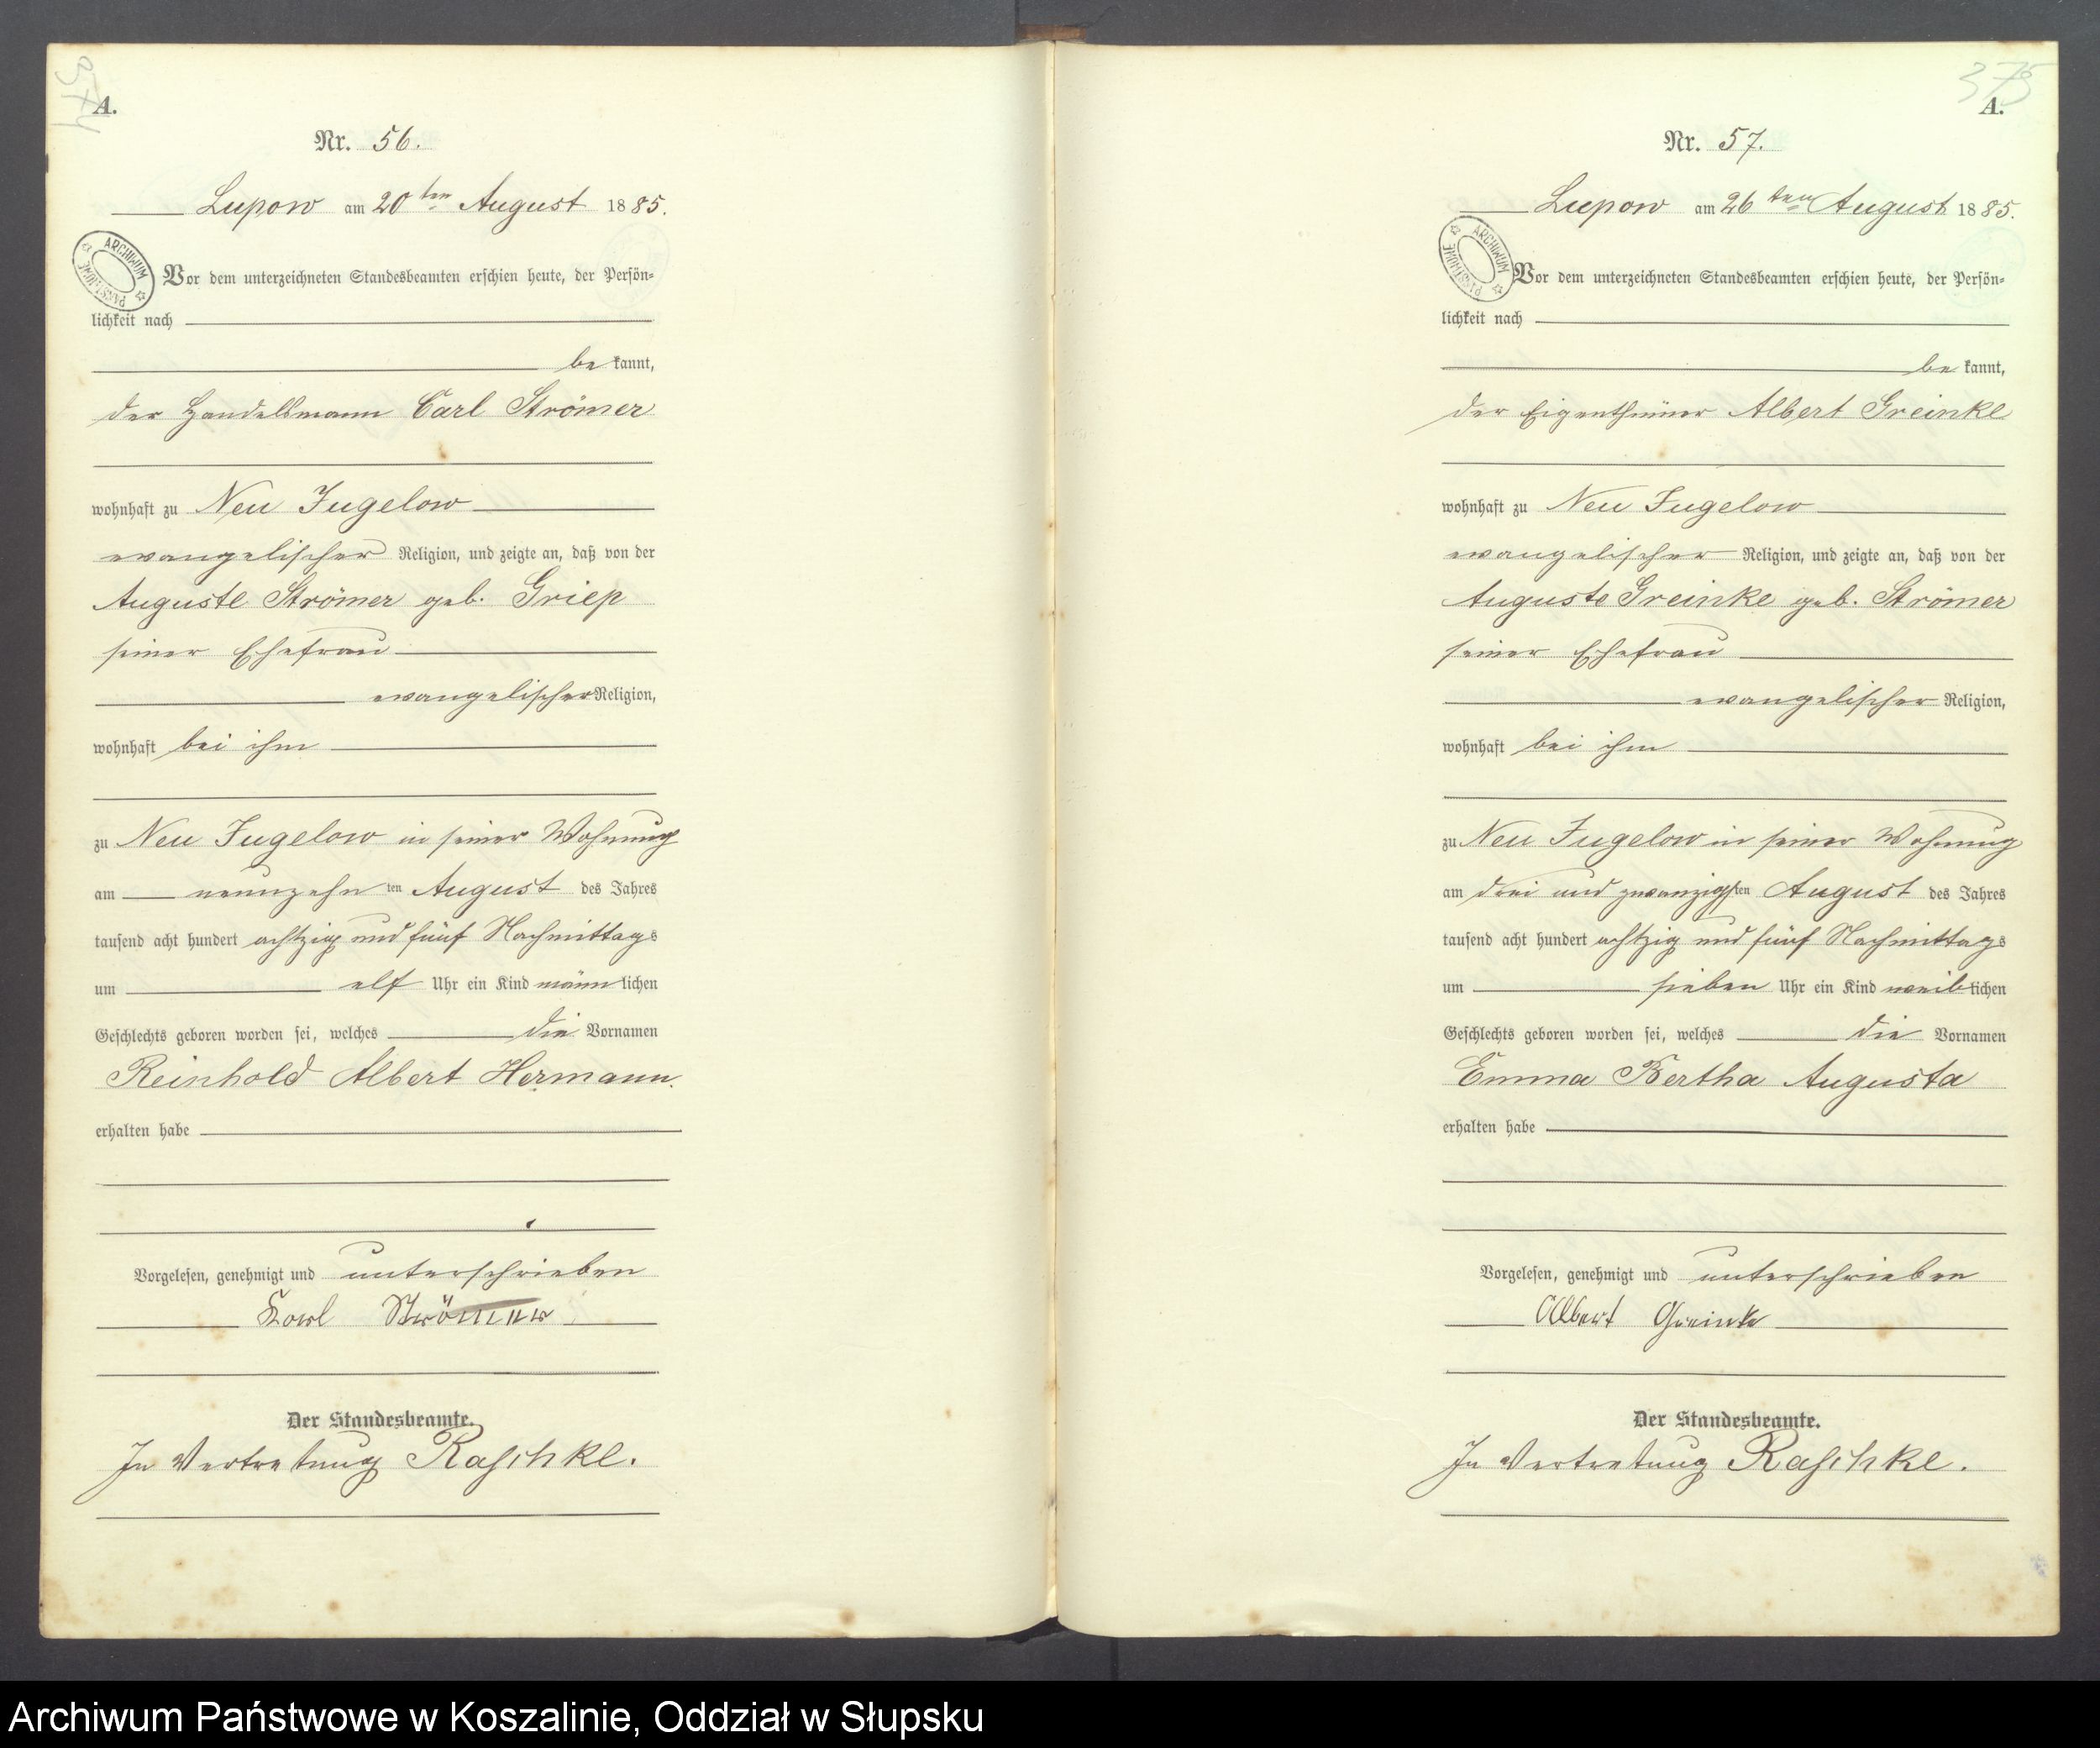 374
A.
Nr. 56.
Lupow am 20ten August 1885.
ARCHIWUM PAŃSTWOWE
Vor dem unterzeichneten Standesbeamten erschien heute, der Persön-
lichkeit nach
be kannt,
der Handelsmann Carl Strömer
wohnhaft zu Neu Jugelow
evangelischer Religion, und zeigte an, daß von der
Auguste Strömer geb. Griep
seiner Ehefrau
evangelischer Religion,
wohnhaft bei ihm
zu Neu Jugelow in seiner Wohnung
am neunzehn ten August des Jahres
tausend acht hundert achtzig und fünf Nachmittags
um elf Uhr ein Kind männ lichen
Geschlechts geboren worden sei, welches die Vornamen
Reinhold Albert Hermann.
erhalten habe
Vorgelesen, genehmigt und unterschrieben
Karl Strömer
Der Standesbeamte.
In Vertretung Raschke.
375
A.
Nr. 57.
Lupow am 26ten August 1885.
ARCHIWUM PAŃSTWOWE
Vor dem unterzeichneten Standesbeamten erschien heute, der Persön-
lichkeit nach
be kannt,
der Eigenthümer Albert Greinke
wohnhaft zu Neu Jugelow
evangelischer Religion, und zeigte an, daß von der
Auguste Greinke geb. Strömer
seiner Ehefrau
evangelischer Religion,
wohnhaft bei ihm
zu Neu Jugelow in seiner Wohnung
am drei und zwanzigsten August des Jahres
tausend acht hundert achtzig und fünf Nachmittags
um sieben Uhr ein Kind weib lichen
Geschlechts geboren worden sei, welches die Vornamen
Emma Bertha Augusta
erhalten habe
Vorgelesen, genehmigt und unterschrieben
Albert Greinke
Der Standesbeamte.
In Vertretung Raschke.
Archiwum Państwowe w Koszalinie, Oddział w Słupsku